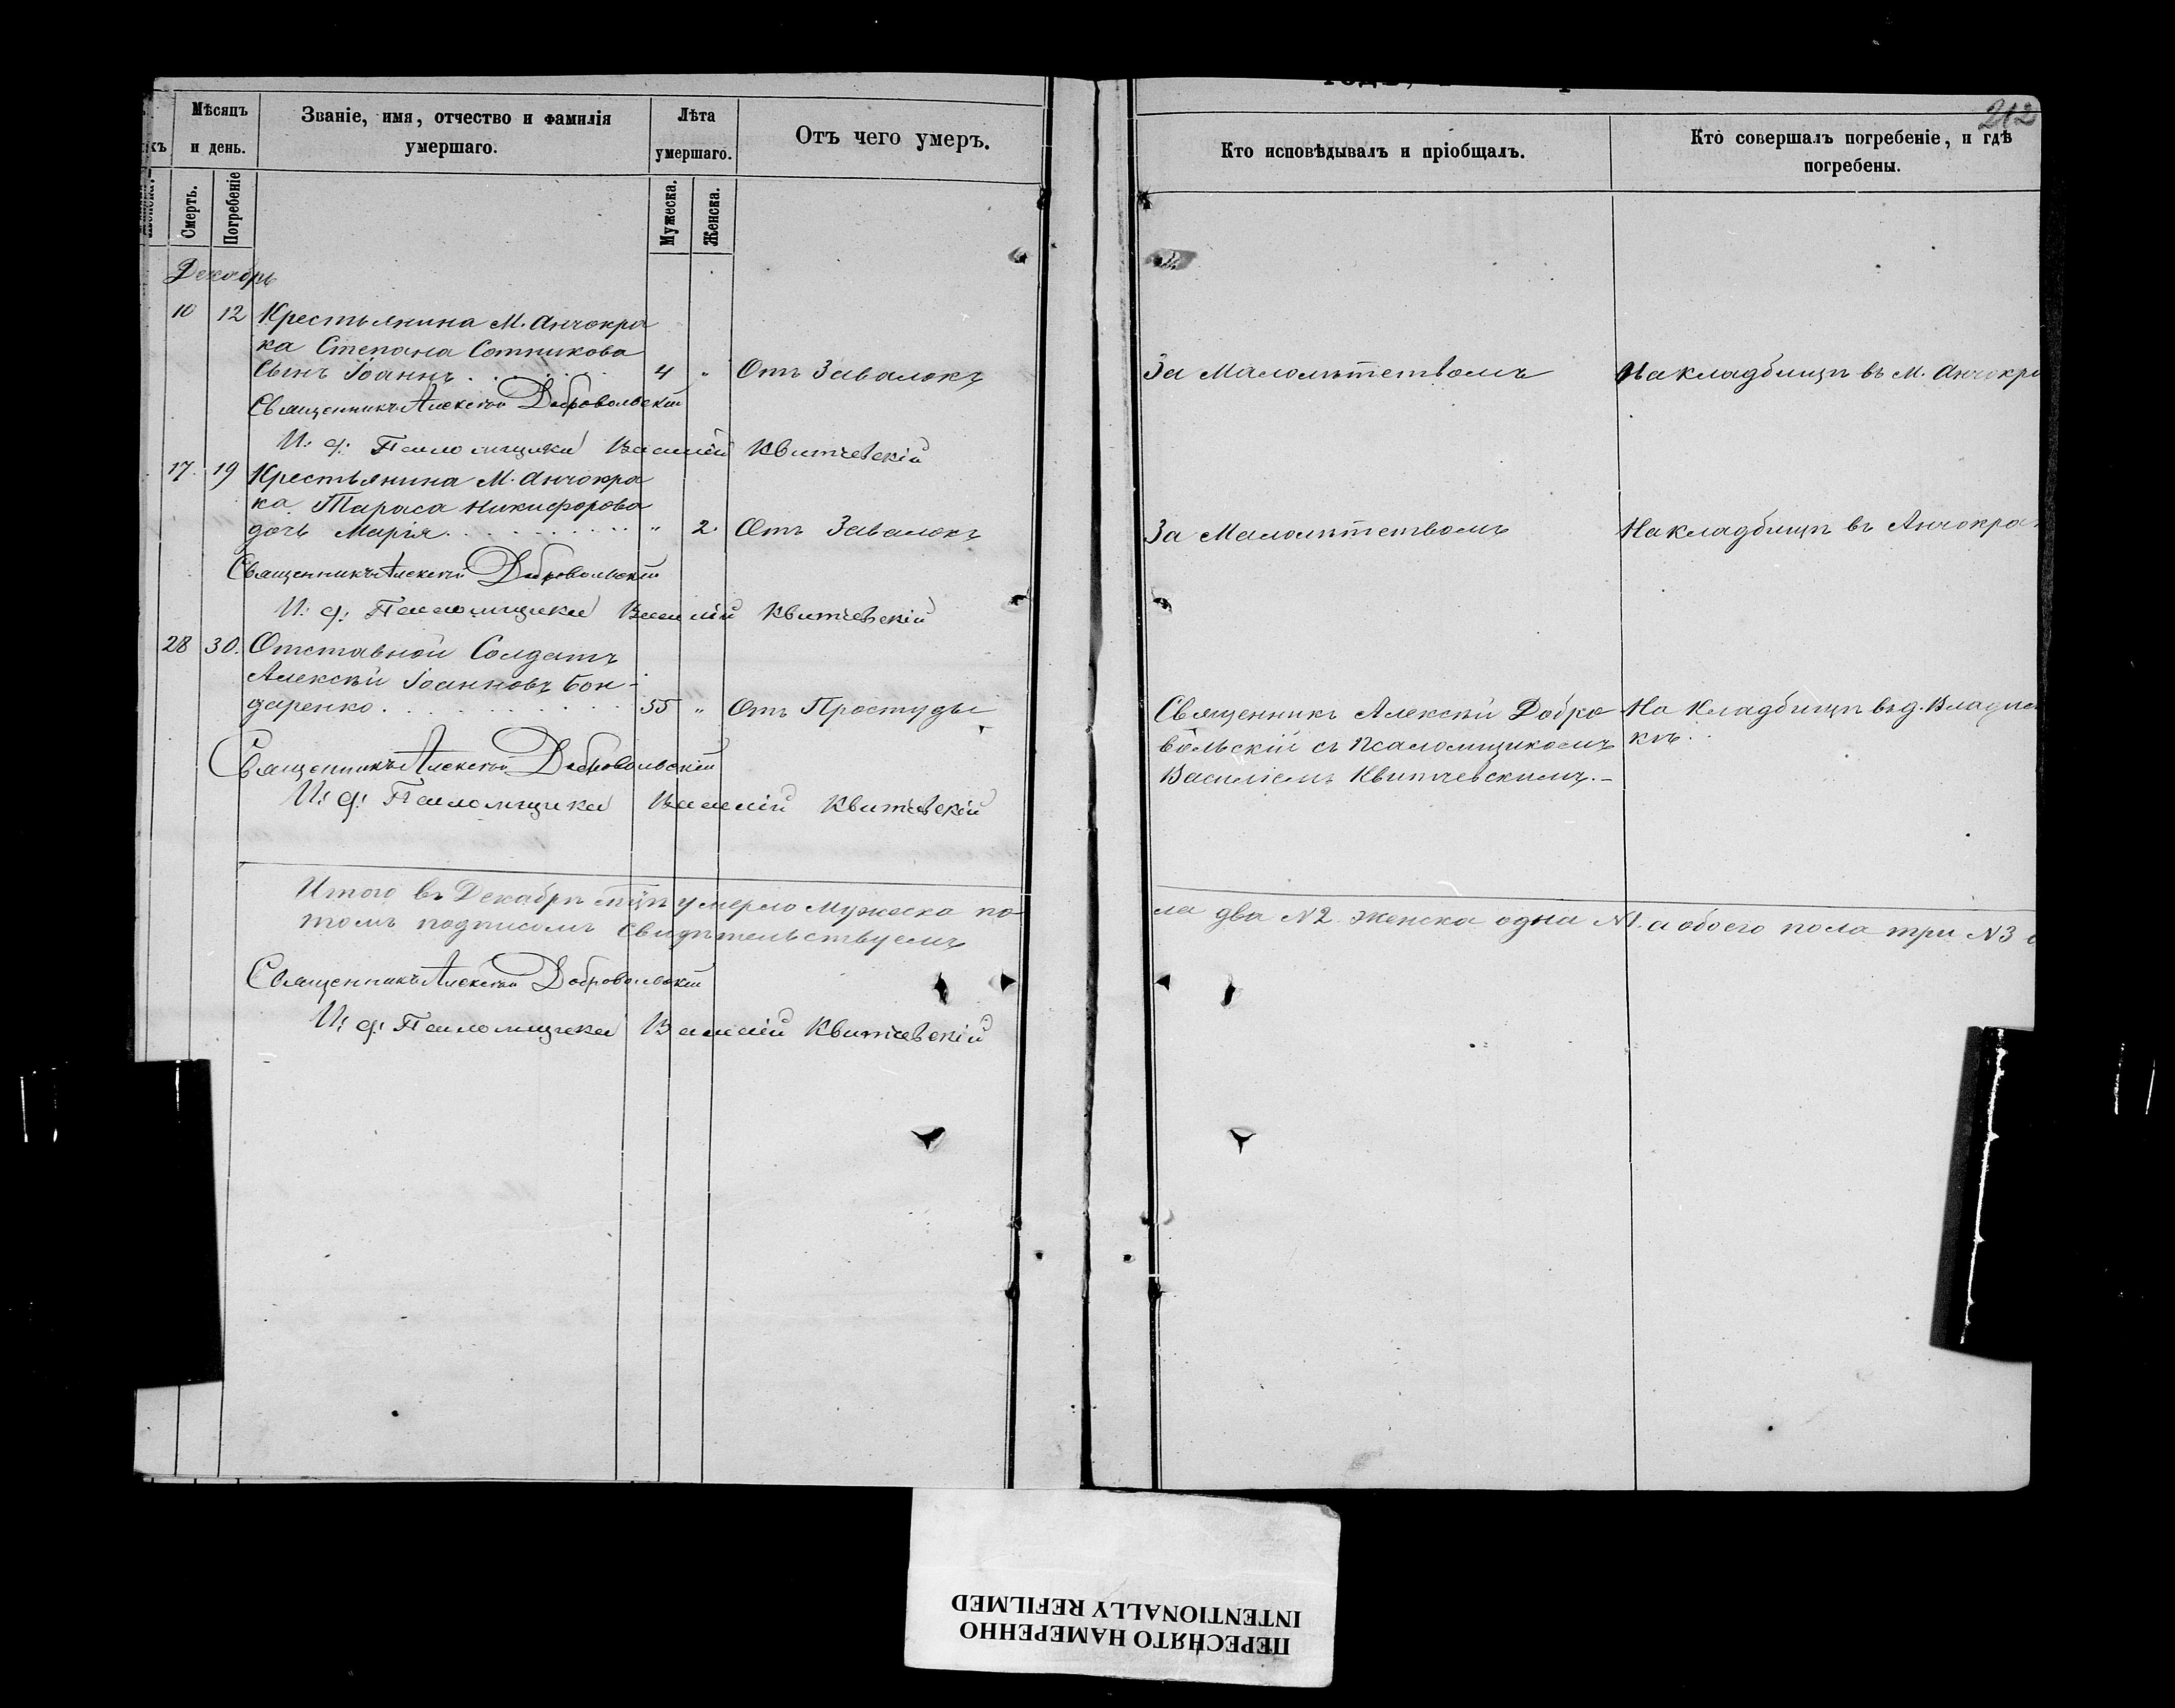 212
Мѣсяцъ
и день.
Званіе, имя, отчество и фамилія
умершаго.
Лѣта
умершаго.
Отъ чего умеръ.
Кто исповѣдывалъ и пріобщалъ.
Кто совершалъ погребеніе, и гдѣ
погребены.
Смерть.
Погребеніе
Мужеска.
Женска.
Декабрь
10 12 Крестьянина М. Анчокра
ка Степана Сотникова
сынъ Іоаннъ . . . . . 4 " Отъ Завалокъ За Малолѣтствомъ На кладбищѣ въ М. Анчокра
Священникъ Алексѣй Добровольскій
И: д: Псаломщика Василій Квитчевскій
17. 19 Крестьянина М. Анчокра
ка Тараса Никифорова
дочь Марія . . . . . . " 2 Отъ Завалокъ За Малолѣтствомъ На кладбищѣ въ Анчокра
Священникъ Алексѣй Добровольскій
И: д: Псаломщика Василій Квитчевскій
28 30. Отставной Солдатъ
Алексѣй Іоанновъ Бон-
даренко . . . . . . 55 " Отъ Простуды Священникъ Алексѣй Добро На Кладбищѣ въ д.
вольскій съ Псаломщикомъ кѣ.
Василіемъ Квитчевскимъ.-
Священникъ Алексѣй Добровольскій
И: д: Псаломщика Василій Квитчевскій
Итого въ Декабрѣ мцѣ умерло мужеска по ла два N2 женска одна N1. а обоего пола три N3
томъ подписомъ свидѣтельствуемъ
Священникъ Алексѣй Добровольскій
И: д: Псаломщика Василій Квитчевскій
ПЕРЕСНЯТО НАМЕРЕННО
INTENTIONALLY REFILMED